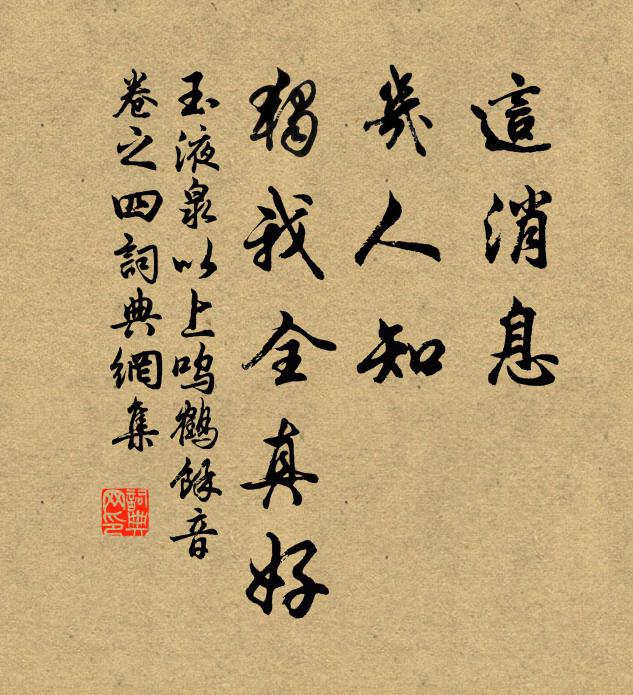 這消息
幾人知
獨我全真好
玉液泉以上鳴鶴餘音
卷之四詞典網集
詞典
网印